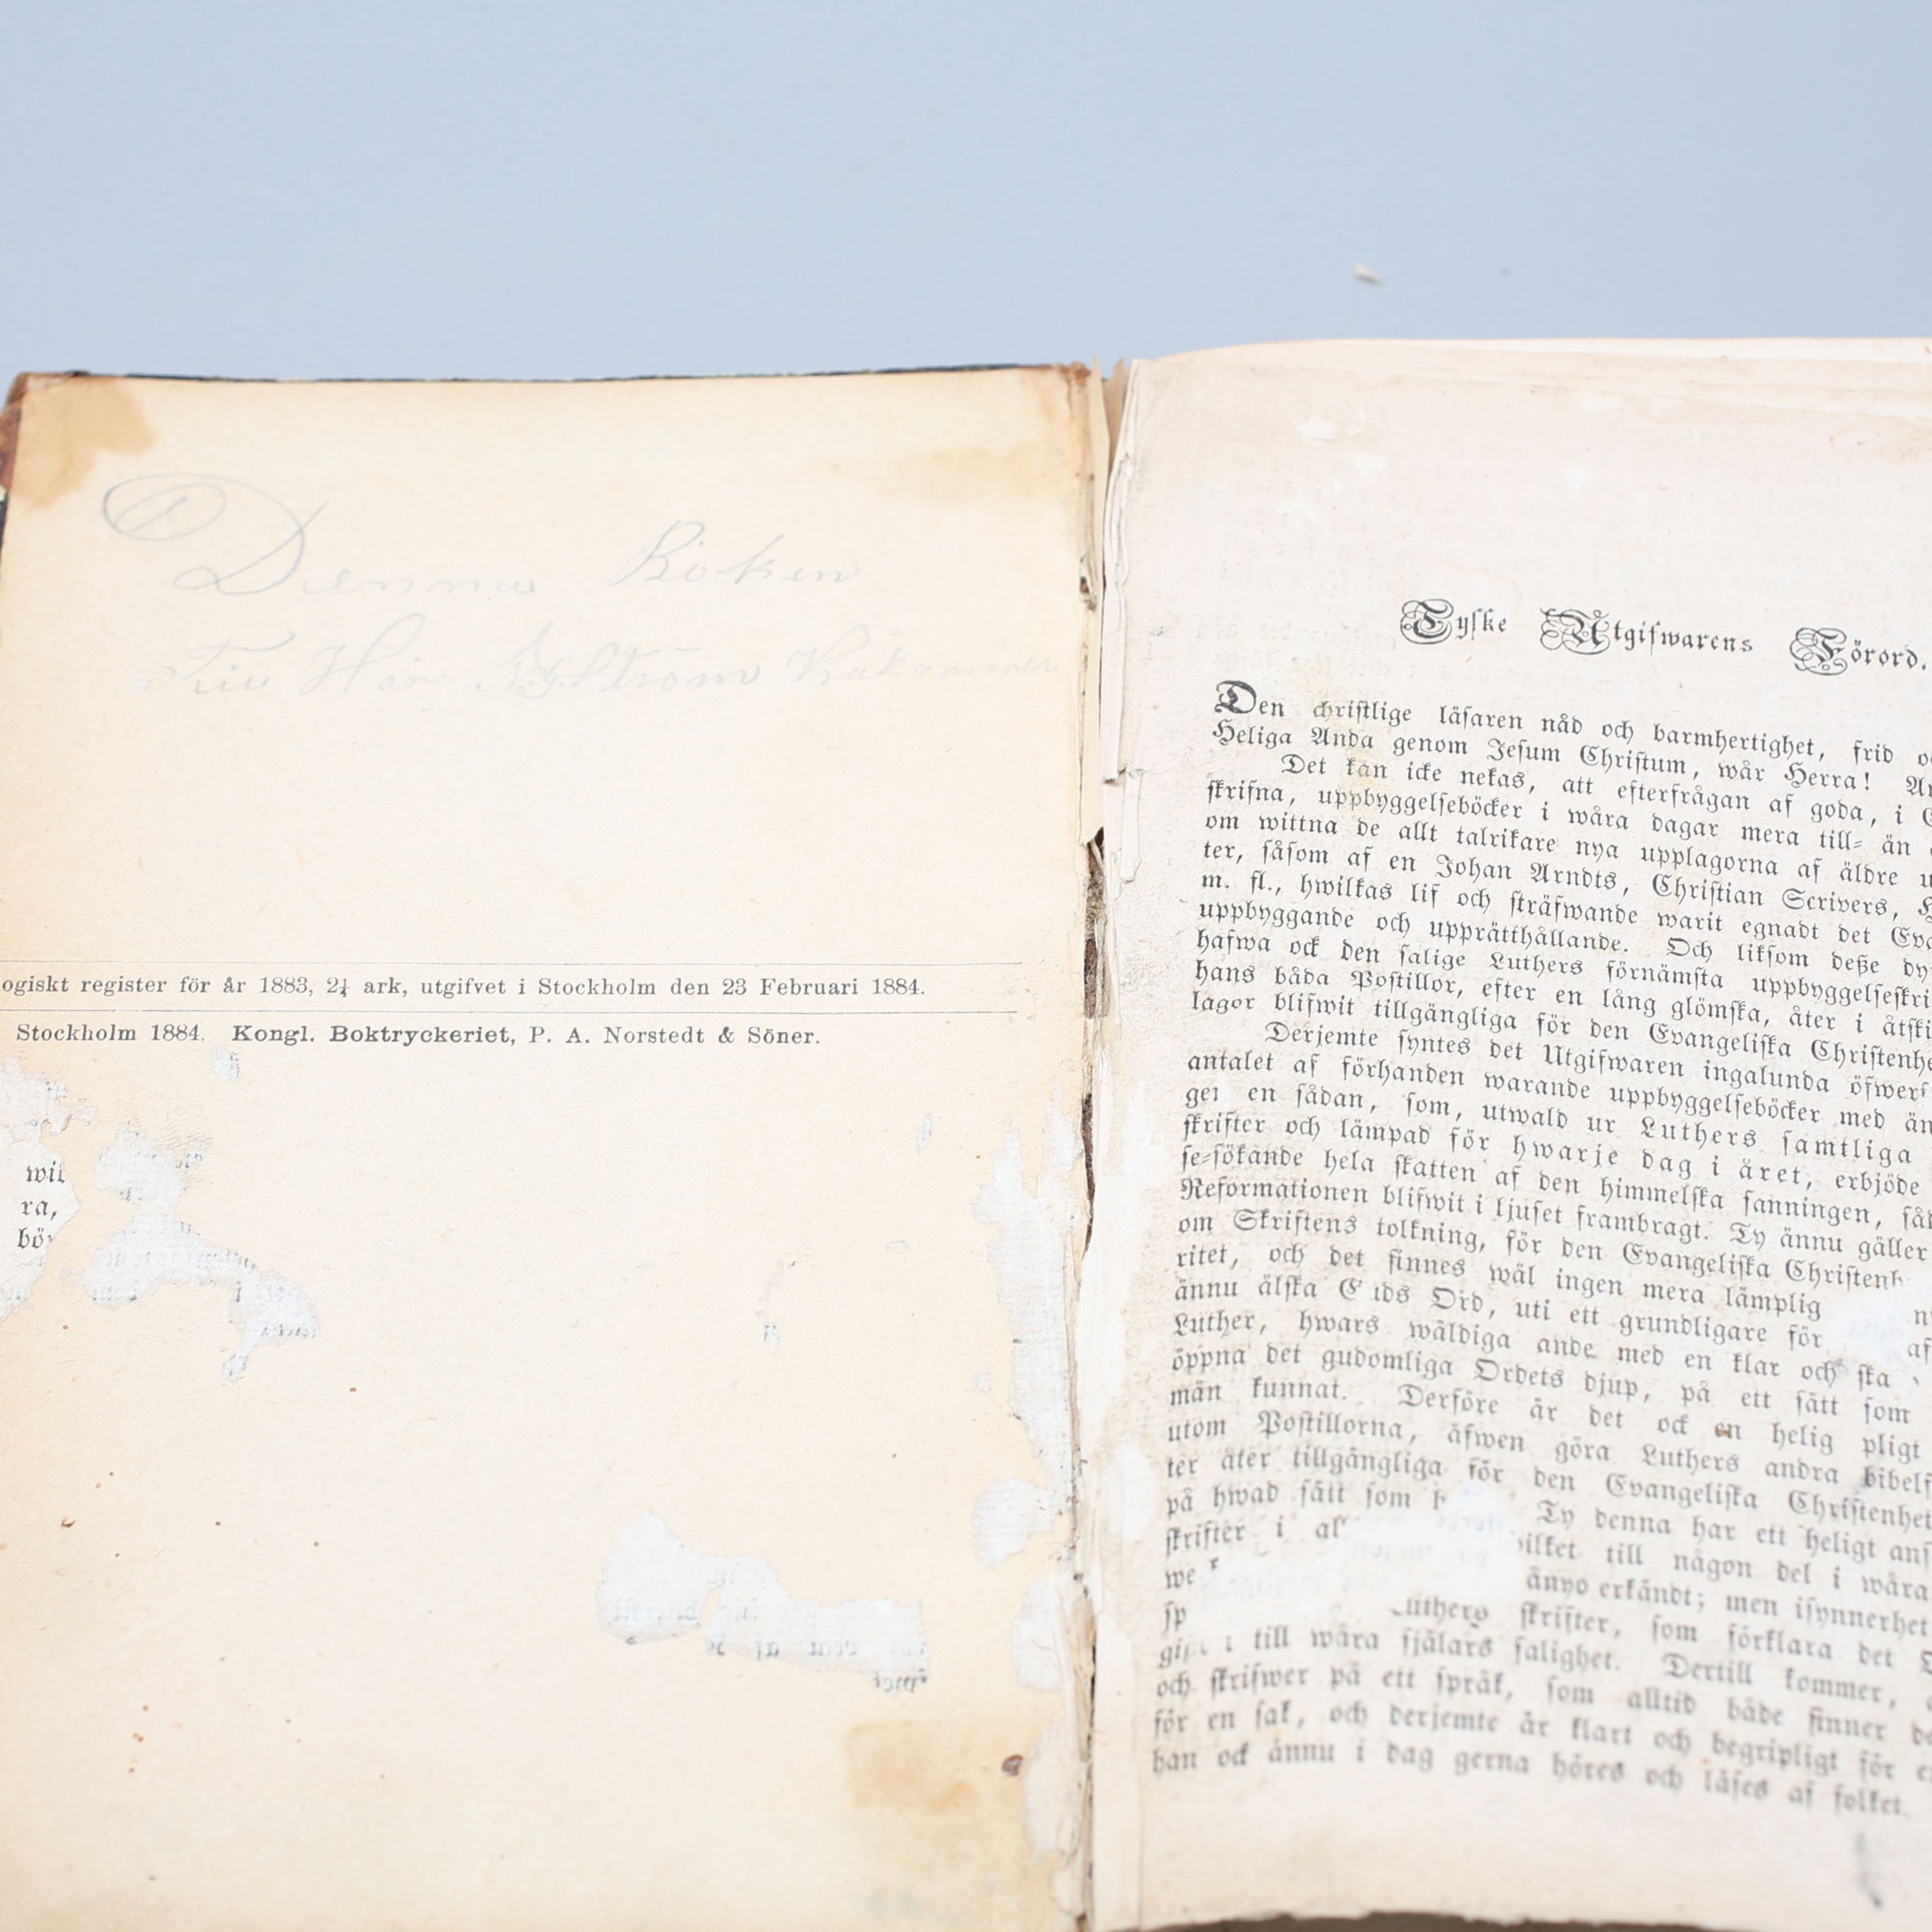 Denna Boken
Tiu Hör
ogiskt register för år 1883, 2¼ ark, utgifvet i Stockholm den 23 Februari 1884.
Stockholm 1884. Kongl. Boktryckeriet, P. A. Norstedt & Söner.
wil
ra,
bö
Tyske Utgifwarens Förord.
Den christlige läsaren nåd och barmhertighet, frid
Heliga Anda genom Jesum Christum, wår Herra!
Det kan icke nekas, att efterfrågan af goda, i
skrifna, uppbyggelseböcker i wåra dagar mera till- än
om wittna de allt talrikare nya upplagorna af äldre
ter, såsom af en Johan Arndts, Christian Scrivers,
m. fl., hwilkas lif och sträfwande warit egnadt det
uppbyggande och upprätthållande. Och liksom deße
hafwa ock den salige Luthers förnämsta uppbyggelseskri
hans båda Postillor, efter en lång glömska, åter i åtski
lagor blifwit tillgängliga för den Evangeliska Christenhe
Derjemte syntes det Utgifwaren ingalunda öfwerf
antalet af förhanden warande uppbyggelseböcker med än
gei en sådan, som, utwald ur Luthers samtliga
skrifter och lämpad för hwarje dag i året, erbjöde
se-sökande hela skatten af den himmelska sanningen, så
Reformationen blifwit i ljuset frambragt. Ty ännu gäller
om Skriftens tolkning, för den Evangeliska Christenh
ritet, och det finnes wäl ingen mera lämplig
ännu älska G ds Ord, uti ett grundligare för af
Luther, hwars wäldiga ande med en klar och ska
öppna det gudomliga Ordets djup, på ett sätt som
män kunnat. Derföre är det ock en helig pligt
utom Postillorna, äfwen göra Luthers andra bibelf
ter åter tillgängliga för den Evangeliska Christenhet
på hwad sätt som h Ty denna har ett heligt ans
skrifter i al hilket till någon del i wåra
we änyo erkändt; men isynnerhet
sp Luthers skrifter, som förklara det
gif till wåra själars salighet. Dertill kommer,
och skrifwer på ett språk, som alltid både finner
för en sak, och derjemte är klart och begripligt för
han ock ännu i dag gerna höres och läses af folket.